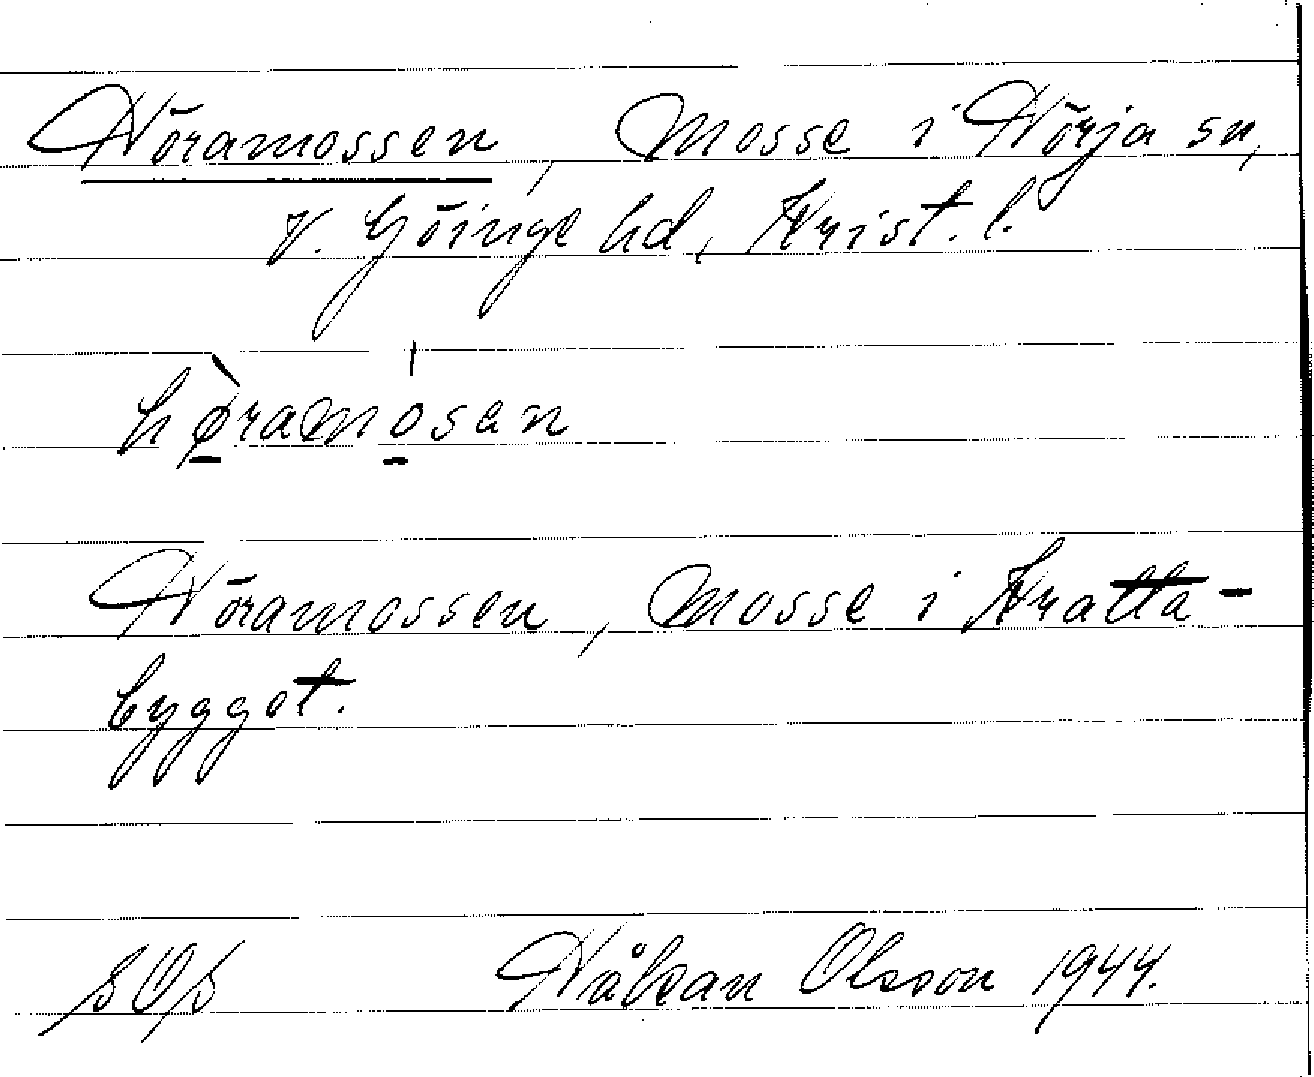 Höramossen, Mosse i Hörja sn,
V. Göinge hd, Krist. l.
hø̱̀ramo̱̍san
Höramossen, Mosse i Kratta-
bygget.
Håkan Olsson 1944.